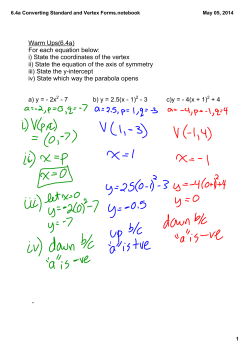 6.4a Converting Standard and Vertex Forms.notebook
May 05, 2014
Warm Ups(6.4a)
For each equation below:
i) State the coordinates of the vertex
ii) State the equation of the axis of symmetry
iii) State the y-intercept
iv) State which way the parabola opens
a) y = - 2x² - 7 b) y = 2.5(x - 1)² - 3 c)y = - 4(x + 1)² + 4
a=-2, p=0, q=-7 a=2.5, p=1, q=-3 a=-4, p=-1, q=4
i) V(p,q)
= (0,-7)
V(1,-3)
V(-1,4)
ii) x=p
x=0
x=1
x=-1
iii) let x=0
y=-2(0)²-7
y=-7
y=2.5(0-1)²-3
y=-0.5
y=-4(0+1)²+4
y=0
iv) down b/c
"a" is -ve
up b/c
"a" is +ve
down b/c
"a" is -ve
1